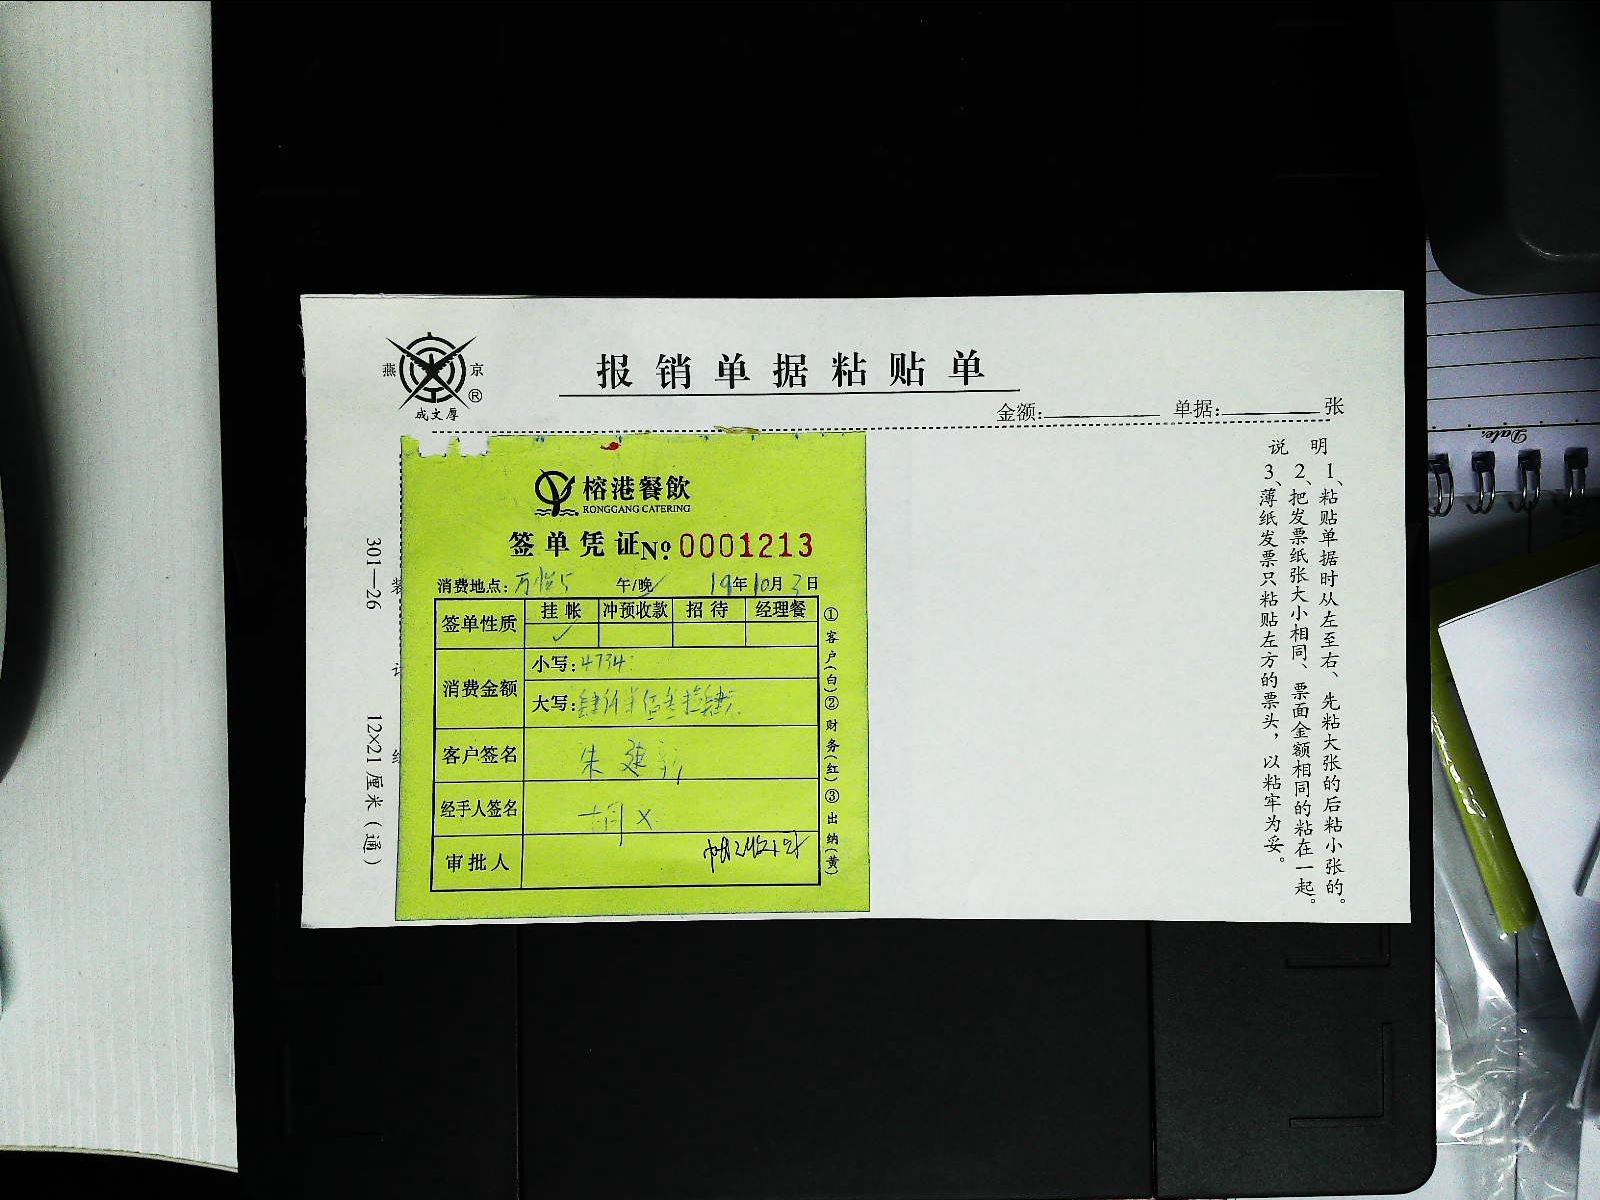 燕京
®
成文厚
报销单据粘贴单
金额:
单据:
张
榕港餐飲
RONGGANG CATERING
签单凭证 No 0001213
消费地点: 午/晚 19年10月3日
签单性质 挂帐 冲预收款 招待 经理餐
✓
消费金额 小写: 4734
大写:
客户签名 朱建新
经手人签名
审批人
①客户(白)②财务(红)③出纳(黄)
301—26
装
订
线
12×21厘米(通)
说明
1、粘贴单据时从左至右、先粘大张的后粘小张的。
2、把发票纸张大小相同、票面金额相同的粘在一起。
3、薄纸发票只粘贴左方的票头，以粘牢为妥。
Date: